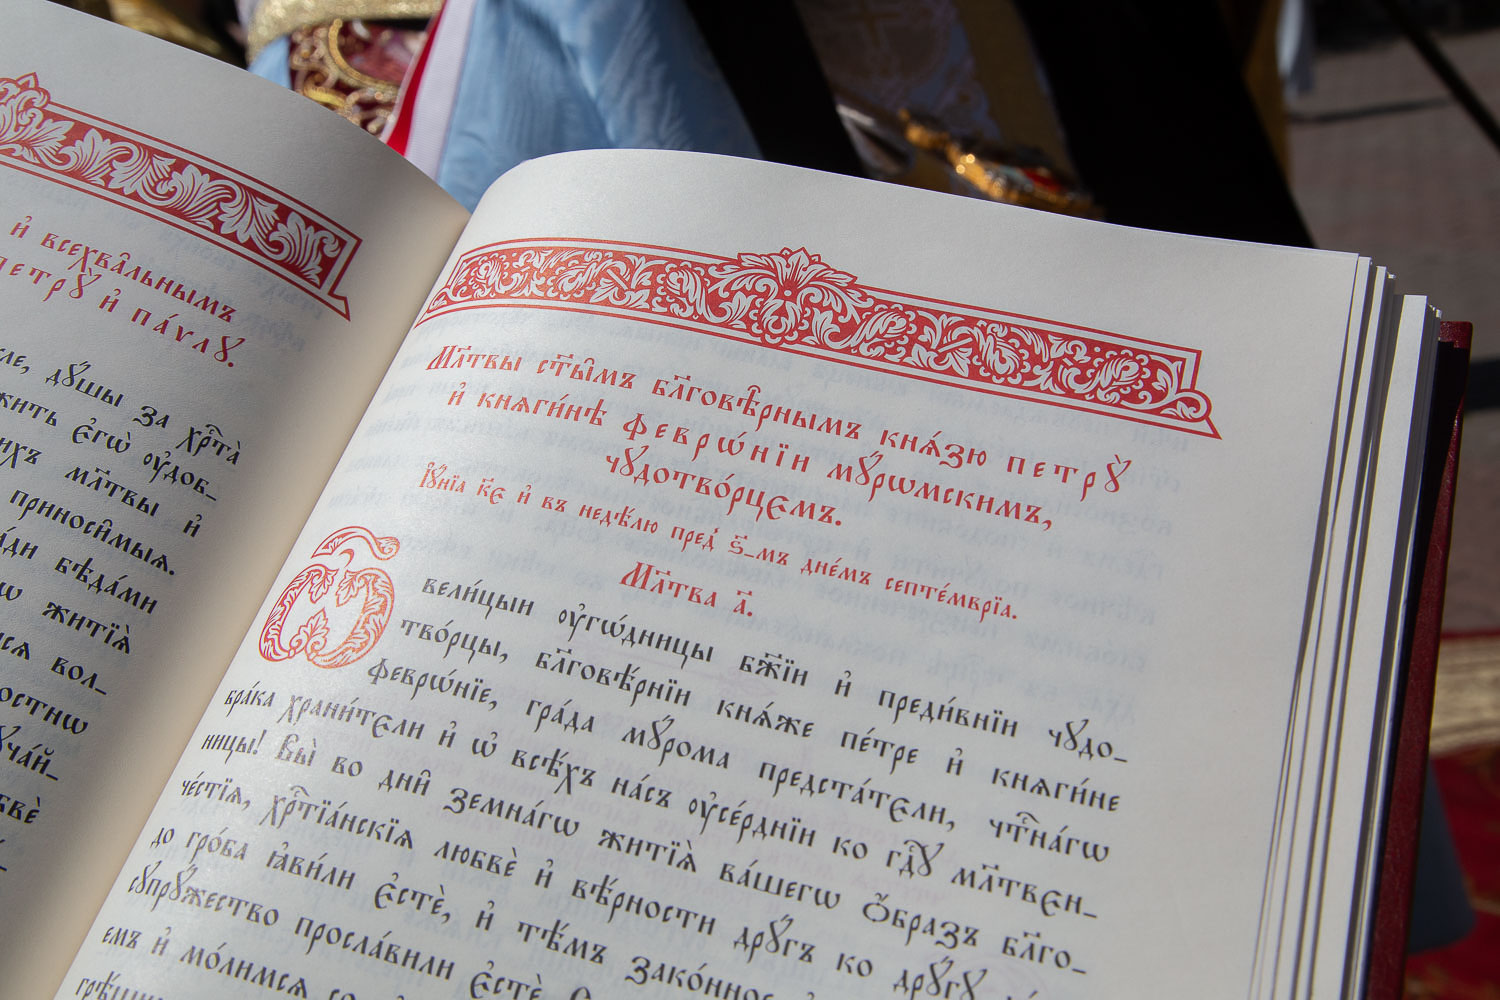 и҆ всехва̑льнымъ
петрꙋ̀ и҆ па́ѵлꙋ.
дꙋ́шы за хрⷭ҇та̀
є҆гѡ̀ ᲂу҆доб_
мл҃твы и҆
приноси̑мыѧ.
бѣда́ми
житїѧ̀
вол_
Мл҃твы ст҃ы̑мъ бл҃говѣ̑рнымъ кнѧ́зю петрꙋ̀
и҆ кнѧги́нѣ феврѡ́нїи мꙋ́рѡмскимъ,
чꙋдотво́рцємъ.
І҆ꙋ́нїа к҃є и҆ въ недѣ́лю пред̾ ѕ҃_мъ дне́мъ септе́мврїа.
Мл҃тва а҃.
Ѽ вели́цыи ᲂу҆гѡ́дницы бж҃їи и҆ преди́внїи чꙋдо_
тво́рцы, бл҃говѣ́рнїи кнѧ́же пе́тре и҆ кнѧги́не
феврѡ́нїе, гра́да мꙋ́рома предста́тєли, чтⷭ҇на́гѡ
бра́ка храни́тєли и҆ ѡ҆ всѣ́хъ на́съ ᲂу҆се́рднїи ко гдⷭ҇ꙋ мл҃твєн_
ницы! Вы̀ во дни̑ земна́гѡ житїѧ̀ ва́шегѡ ѻ҆́бразъ бл҃го_
че́стїѧ, хрⷭ҇тїа́нскїѧ любвѐ и҆ вѣ́рности дрꙋ́гъ ко дрꙋ́гꙋ
до гро́ба ꙗ҆ви́ли є҆стѐ, и҆ тѣ́мъ зако́нное
сꙋпрꙋ́жество просла́вили є҆стѐ.
емъ и҆ мо́лимсѧ